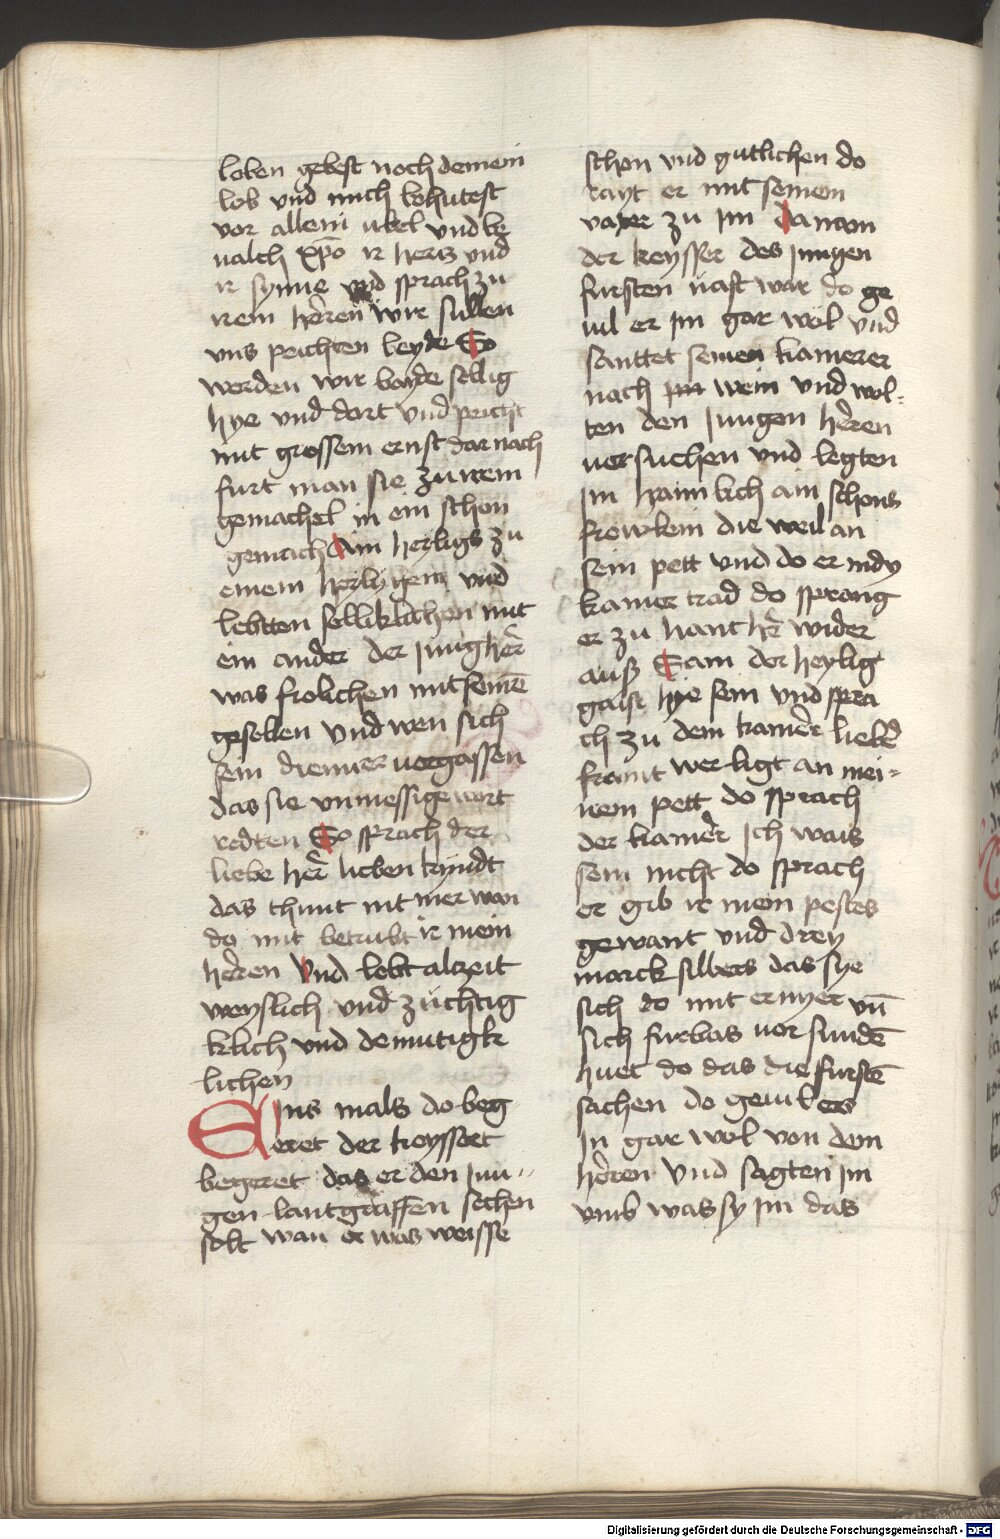 loben gebest noch deinem
lob vnd mich behutest
vor allem ubel vnd be
ualch xp̄o ir hertz vnd
ir synne vnd sprach zu
irem herren wir sullen
vns peichten beyde So
werden wir bayde sellig
hye vnd dort vnd peicht
mit grossem ernst dar nach
furt man sie zu irem
gemachel in ein schon
gemach Ain heyligs zu
einem heyligem vnd
lebtten selliklichen mit
ein ander der jung her̄
was frolichen mit seinē
gesellen vnd wen sich
sein diener uergassen
das sie vnmessige wort
redten So sprach der
liebe her̄ lieben kyndt
das thunt nit mer wan
do mit betrubt ir mein
herren Vnd lebt alzeit
weyslich vnd zuchtig
klich vnd demutigk
lichen
Eins mals do beg
eret der keysser
begeret das er den jun
gen lantgraffen sechen
solt wan er was weisse
schon vnd gutlichen do
rayt er mit seinem
vater zu jm da nam
der keysser des jungen
fursten uast war do ge
uil er jm gar wol vnd
santtet seinen kamerer
nach jm wein vnd wol-
ten den jungen herren
uersuchen vnd legten
jm haimlich ain schons
frowlein die weil an
sein pett vnd do er in dy
kamer trad do sprang
er zu hant her̄ wider
auß Sam der heylig
gaist hye sein vnd spra
ch zu dem kamer̄ liebē
fraint wer ligt an mei-
nem pett do sprach
der kamer̄ ich wais
sein nicht do sprach
er gib ir mein pestes
gewant vnd drey
marck silbers das sye
sich do mit ernyer vn̄
sich furbas vor sundē
huet do das die furstē
sachen do geuil ers
jn gar wol von dem
herren Vnd sagten jm
vmb was sy jm das
Digitalisierung gefördert durch die Deutsche Forschungsgemeinschaft - DFG